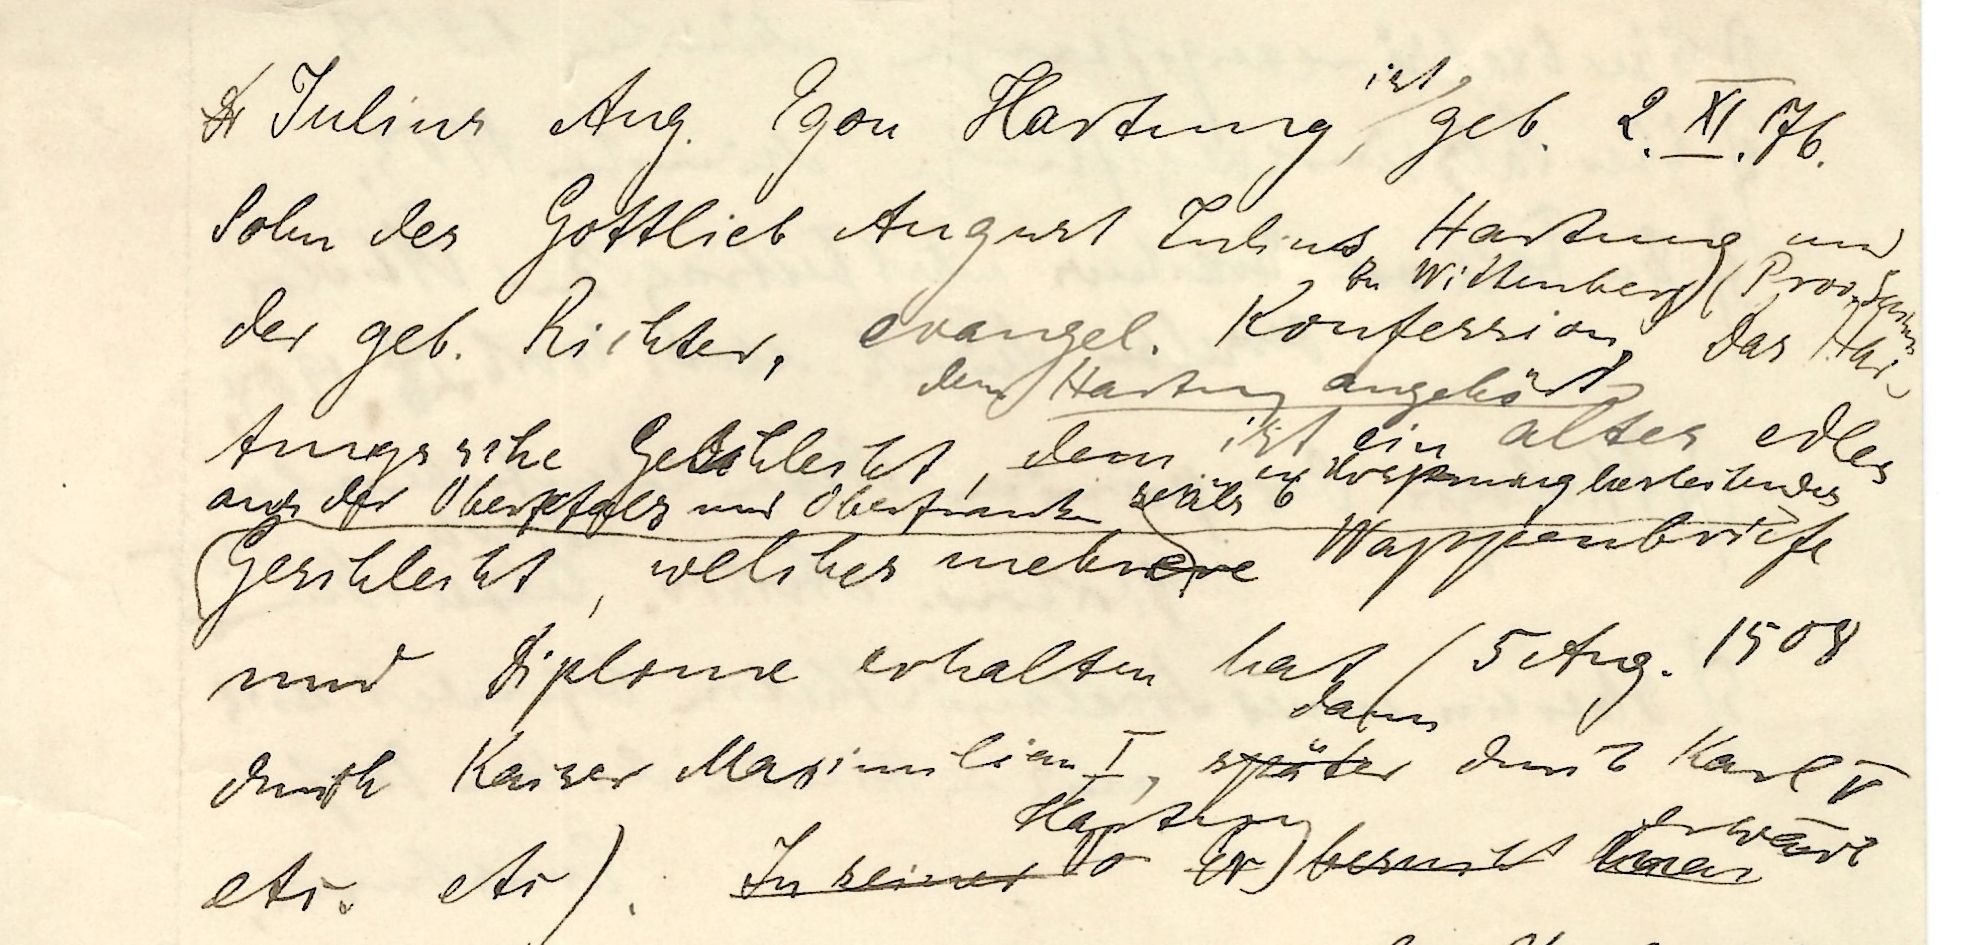 Dr Julius Aug. Egon Hartung, ist geb. 2. XI. 76.
Sohn des Gottlieb August Julius Hartung und
zu Wittenberg (Prov. Sachsen
der geb. Richter, evangel. Konfession. Das Har-
dem Hartung angehört
tungssche Geschlecht, dem ist ein altes edles
aus der Oberpfalz und Oberfranken Ursprung herleitendes
Geschlecht, welches mehrere Wappenbriefe
und Diplome erhalten hat (5 Aug. 1508
dann
durch Kaiser Maximilian I, später durch Karl V
Hartung erwarb
etc. etc). In seiner Er besucht